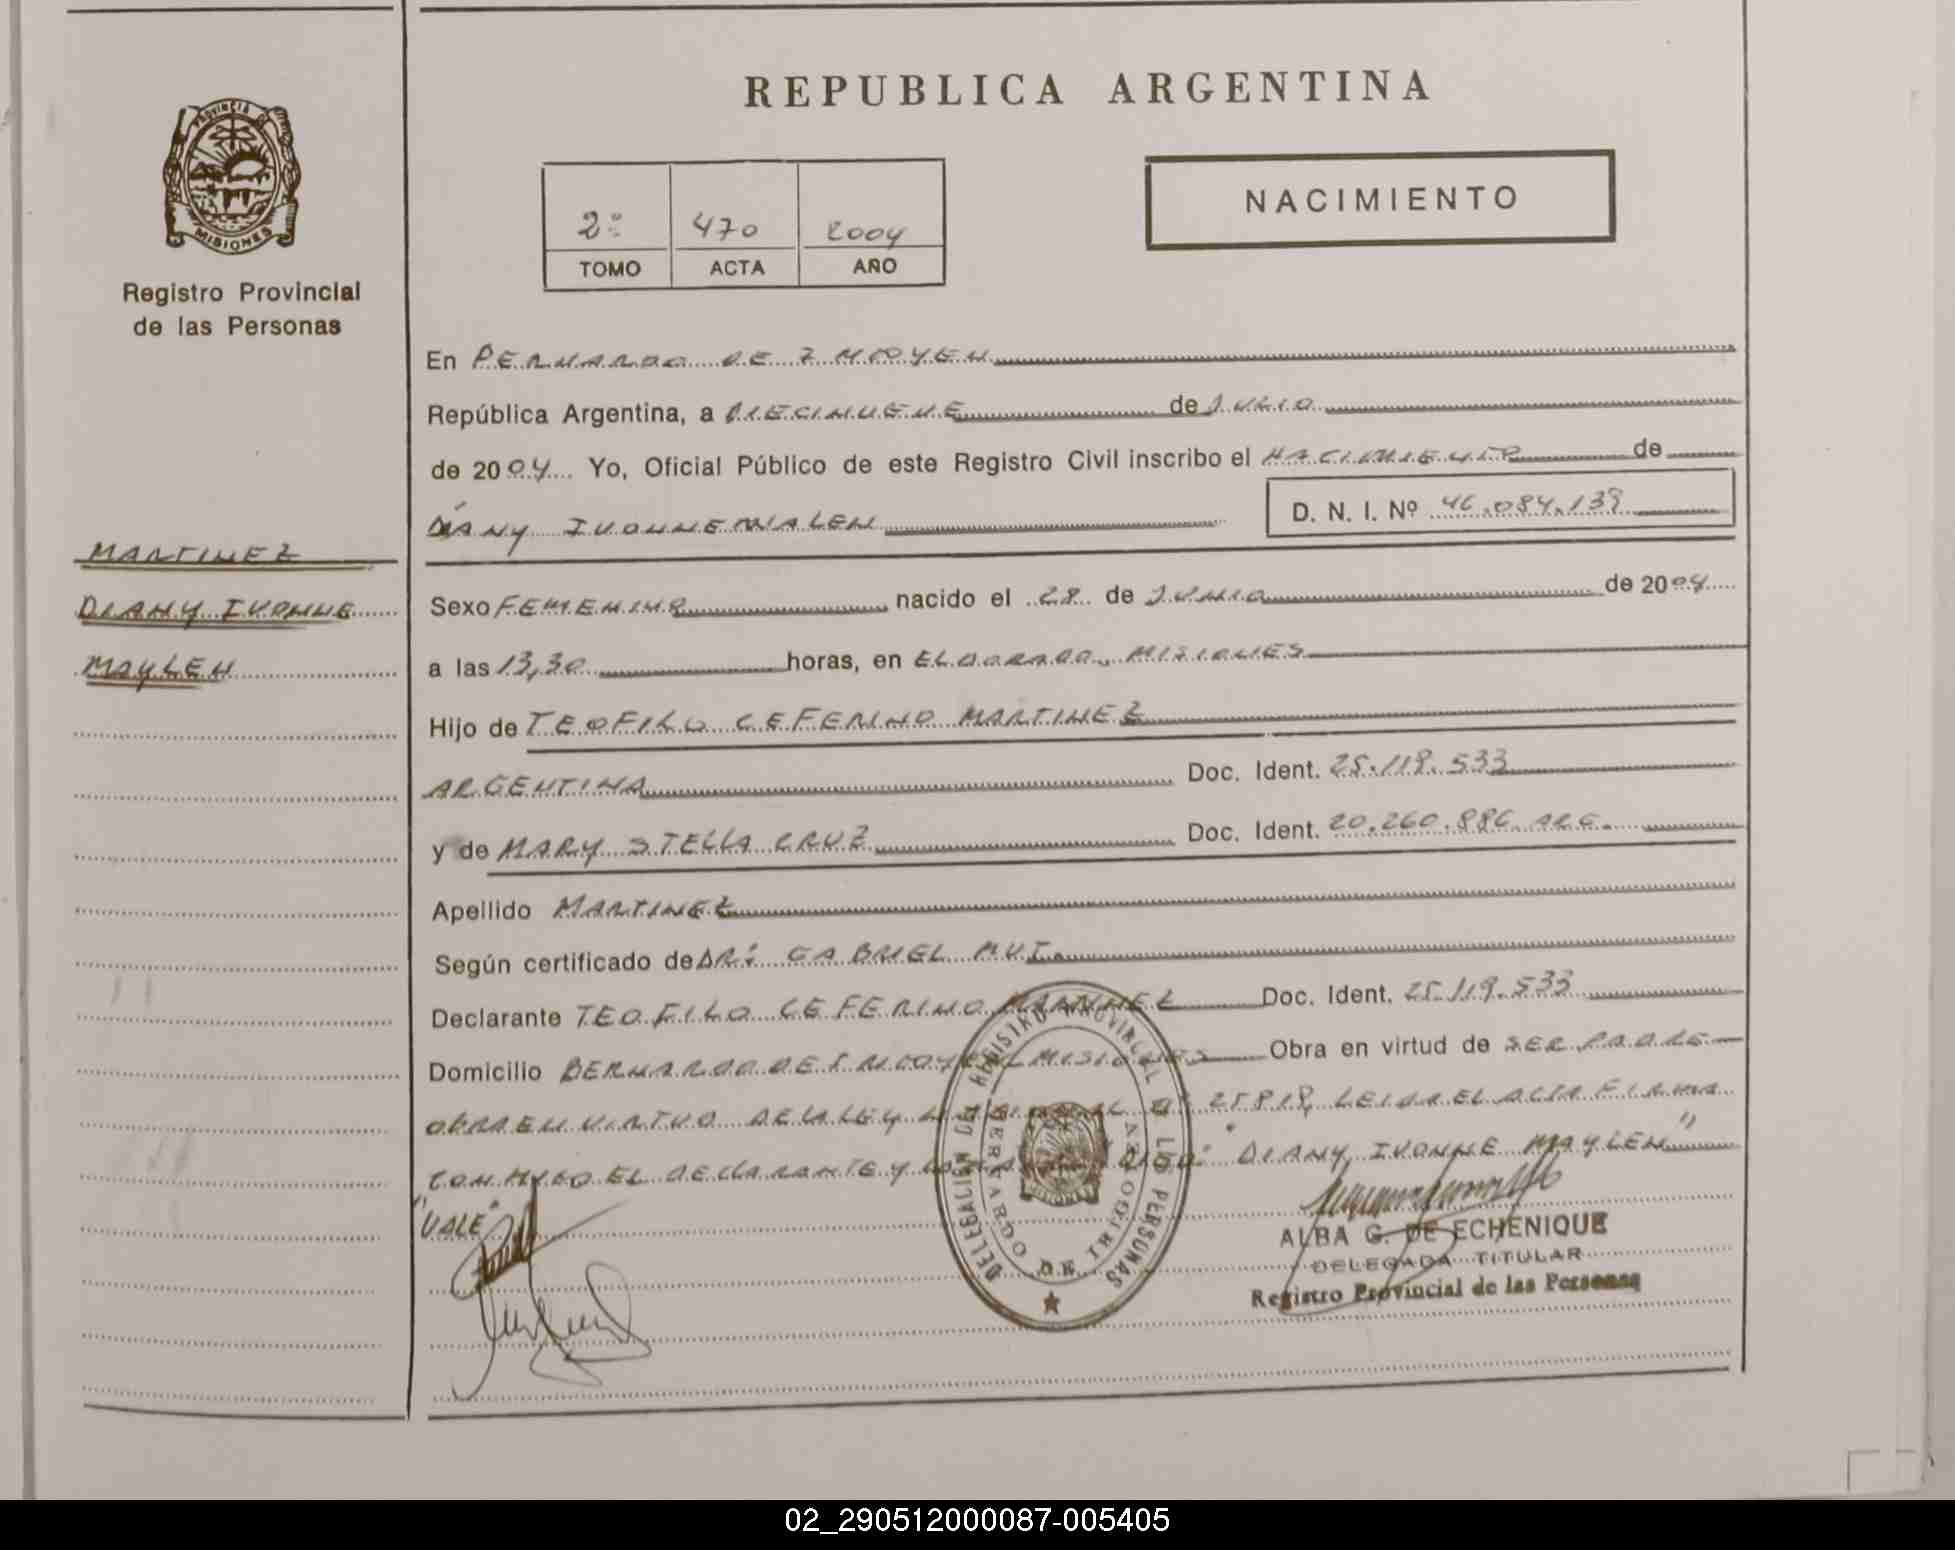 REPUBLICA ARGENTINA
PROVINCIA DE
MISIONES
Registro Provincial
de las Personas
2º 470 2004
TOMO ACTA AÑO
NACIMIENTO
MARTINEZ
DIANY IVONNE
MAYLEN
En BERNARDO DE IRIGOYEN
República Argentina, a DIECINUEVE de JULIO
de 2004 Yo, Oficial Público de este Registro Civil inscribo el NACIMIENTO de
DIANY IVONNE MALEN D. N. I. Nº 46.084.139
Sexo FEMENINO nacido el 28 de JUNIO de 2004
a las 13,30 horas, en ELDORADO, MISIONES
Hijo de TEOFILO CEFERINO MARTINEZ
ARGENTINA Doc. Ident. 25.119.533
y de MARY STELLA CRUZ Doc. Ident. 20.260.886 ARG.
Apellido MARTINEZ
Según certificado de DR: GABRIEL MUI
Declarante TEOFILO CEFERINO MARTINEZ Doc. Ident. 25.119.533
Domicilio BERNARDO DE IRIGOYEN MISIONES Obra en virtud de SER PADRE
OBRA EN VIRTUD DE LA LEY Nº 25818, LEIDA EL ACTA FIRMA
CONMIGO EL DECLARANTE Y "DIANY IVONNE MAYLEN"
"VALE"
DELEGACION DEL REGISTRO PROVINCIAL DE LAS PERSONAS
BERNARDO DE IRIGOYEN
ALBA G. DE ECHENIQUE
DELEGADA TITULAR
Registro Provincial de las Personas
02_290512000087-005405